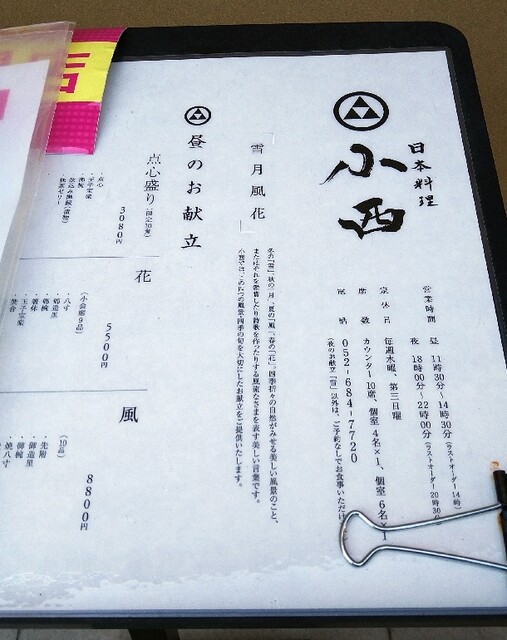 日本料理
小西
営業時間 昼 11時30分～14時30分(ラストオーダー14時)
夜 18時00分～22時00分(ラストオーダー20時30分
定休日 毎週水曜、第三日曜
席数 カウンター10席、個室 4名×1、個室 6名×1
電話 052-684-7720
(夜のお献立「雪」以外は、ご予約なしでお食事いただけ
「雪月風花」
冬の「雪」、秋の「月」、夏の「風」、春の「花」。四季折々の自然がみせる美しい風景のこと、
またはそれを表情したり詩歌を作ったりする風流なさまを表す美しい言葉です。
小西では、この四つの風景や四季の旬を大切にしたお献立をご提供いたします。
昼のお献立
点心盛り(限定10食)
3080円
・点心
・玉子宝楽
・御椀
花
5500円
(小会席9品)
・八寸
・御造里
・御椀
・箸休
・玉子宝楽
・焚合
風
8800円
(10品)
・先附
・御造里
・御椀
・焼八寸